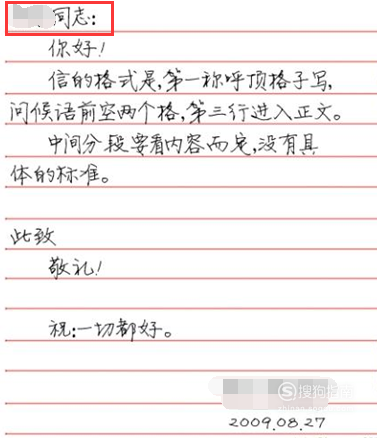 同志:
你好!
信的格式是,第一称呼顶格子写,
问候话前空两个格,第三行进入正文。
中间分段要看内容而定,没有具
体的标准。
此致
敬礼!
祝:一切都好。
搜狗指南
2009.08.27